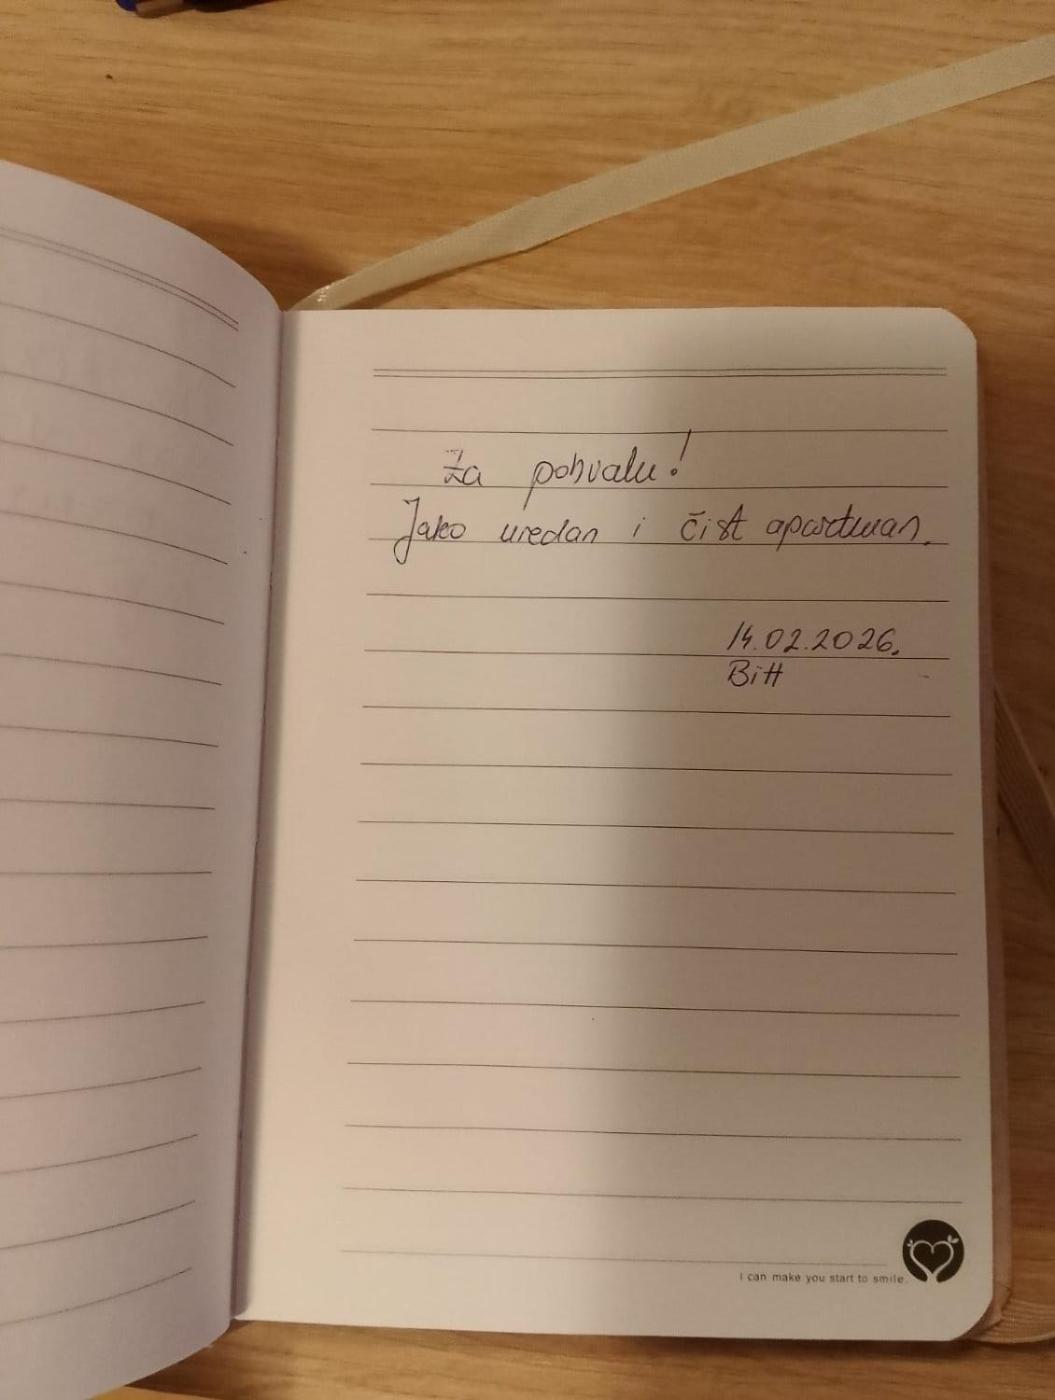 Za pohvalu!
Jako uredan i čist apartman.
14.02.2026.
BiH
I can make you start to smile.